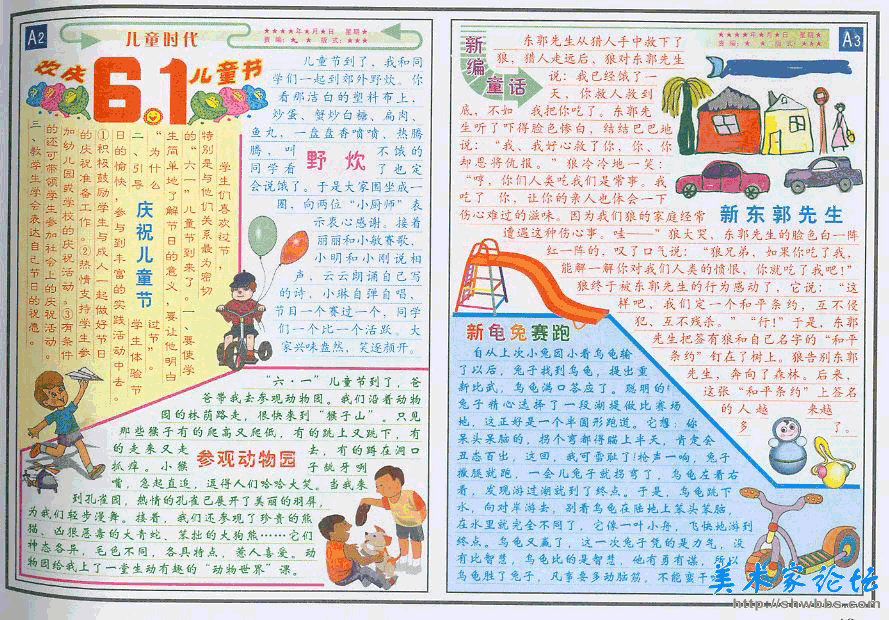 A2
儿童时代
★★★★年★月★日 星期★
责编：★ ★ 版式：★★★
欢庆
6.1
儿童节
庆祝儿童节
学生们喜欢过节，
特别是与他们关系最为密切
的“六一”儿童节到来了。一、要使学
生简单地了解节日的意义，要让他明白
“为什么
过节”。
二、引导
学生体验节
日的愉快，参与到丰富的实践活动中去。
①积极鼓励学生与成人一起做好节日
的庆祝准备工作。②热情支持学生参
加幼儿园或学校的庆祝活动。③有条件
的还可带领学生参加社会上的庆祝活动。
三、教学生学会表达自己节日的祝愿。
儿童节到了，我和同
学们一起到郊外野炊。你
看那洁白的塑料布上，
炒蛋、蟹炒白糖、扁肉、
鱼丸，一盘盘香喷喷，热腾
腾，叫
不饿的
野炊
同学看
了也定
会说饿了。于是大家围坐成一
圈，向两位“小厨师”表
示衷心感谢。接着
丽丽和小敏赛歌，
小明和小刚说相
声，云云朗诵自己写
的诗，小琳自弹自唱，
节目一个赛过一个，同学
们一个比一个活跃。大
家兴味盎然，笑逐颜开。
“六·一”儿童节到了，爸
爸带我去参观动物园。我们沿着动物
园的林荫路走，很快来到“猴子山”。只见
那些猴子有的爬高又爬低，有的跳上又跳下，有
的走来又走
去，有的蹲在洞口
参观动物园
抓痒。小猴
子龇牙咧
嘴，急起直追，逗得人们哈哈大笑。当我来
到孔雀园，热情的孔雀已展开了美丽的羽屏，
为我们轻步漫舞。接着，我们还参观了珍贵的熊
猫、凶狠恶毒的大青蛇、笨拙的大狗熊……它们
神态各异，毛色不同，各具特点，惹人喜爱。动
物园给我上了一堂生动有趣的“动物世界”课。
A3
★★★★年★月★日 星期★
责编：★ ★ 版式：★★★
新编
童话
东郭先生从猎人手中救下了
狼，猎人走远后，狼对东郭先生
说：“我已经饿了一
天，你救人救到
底，不如 我把你吃了。”东郭先
生听了吓得脸色惨白，结结巴巴地
说：“我、我好心救了你、你、你
却恩将仇报。”狼冷冷地一笑：
“哼，你们人类吃我们是常事。我
吃了 你，让你的亲人也体会一下
伤心难过的滋味。因为我们狼的家庭经常
遭遇这种伤心事。哇——”狼大哭，东郭先生的脸色白一阵
红一阵的，叹了口气说：“狼兄弟，如果你吃了我，
能解一解你对我们人类的愤恨，你就吃了我吧！”
狼终于被东郭先生的行为感动了，它说：“这
样吧、我们定一个和平条约，互不侵
犯、互不残杀。”“行！”于是，东郭
先生把签有狼和自己名字的“和平
条约”钉在了树上。狼告别东郭
先生，奔向了森林。后来，
这张“和平条约”上签名
的人越
来越
多
了。
新东郭先生
新龟兔赛跑
自从上次小兔因小看乌龟输
了以后，兔子找到乌龟，提出重
新比武，乌龟满口答应了。聪明的
兔子精心选择了一段湖堤做比赛场
地，这正好是一个半圆形跑道。它想：你
呆头呆脑的，拐个弯都得猫上半天，肯定会
丑态百出，这回，我可雪耻了！枪声一响，兔子
撒腿就跑，一会儿兔子就拐弯了，乌龟左看右
看，发现游过湖就到了终点。于是，乌龟跳下
水，向对岸游去，别看乌龟在陆地上笨头笨脑，
在水里就完全不同了，它像一叶小舟，飞快地游到
终点。乌龟又赢了，这一次兔子凭的是力气，没
有比智慧，乌龟比的是智慧，他有勇有谋，所以
乌龟胜了兔子，凡事要多动脑筋，不能蛮干
美术家论坛
http://shwbbs.com